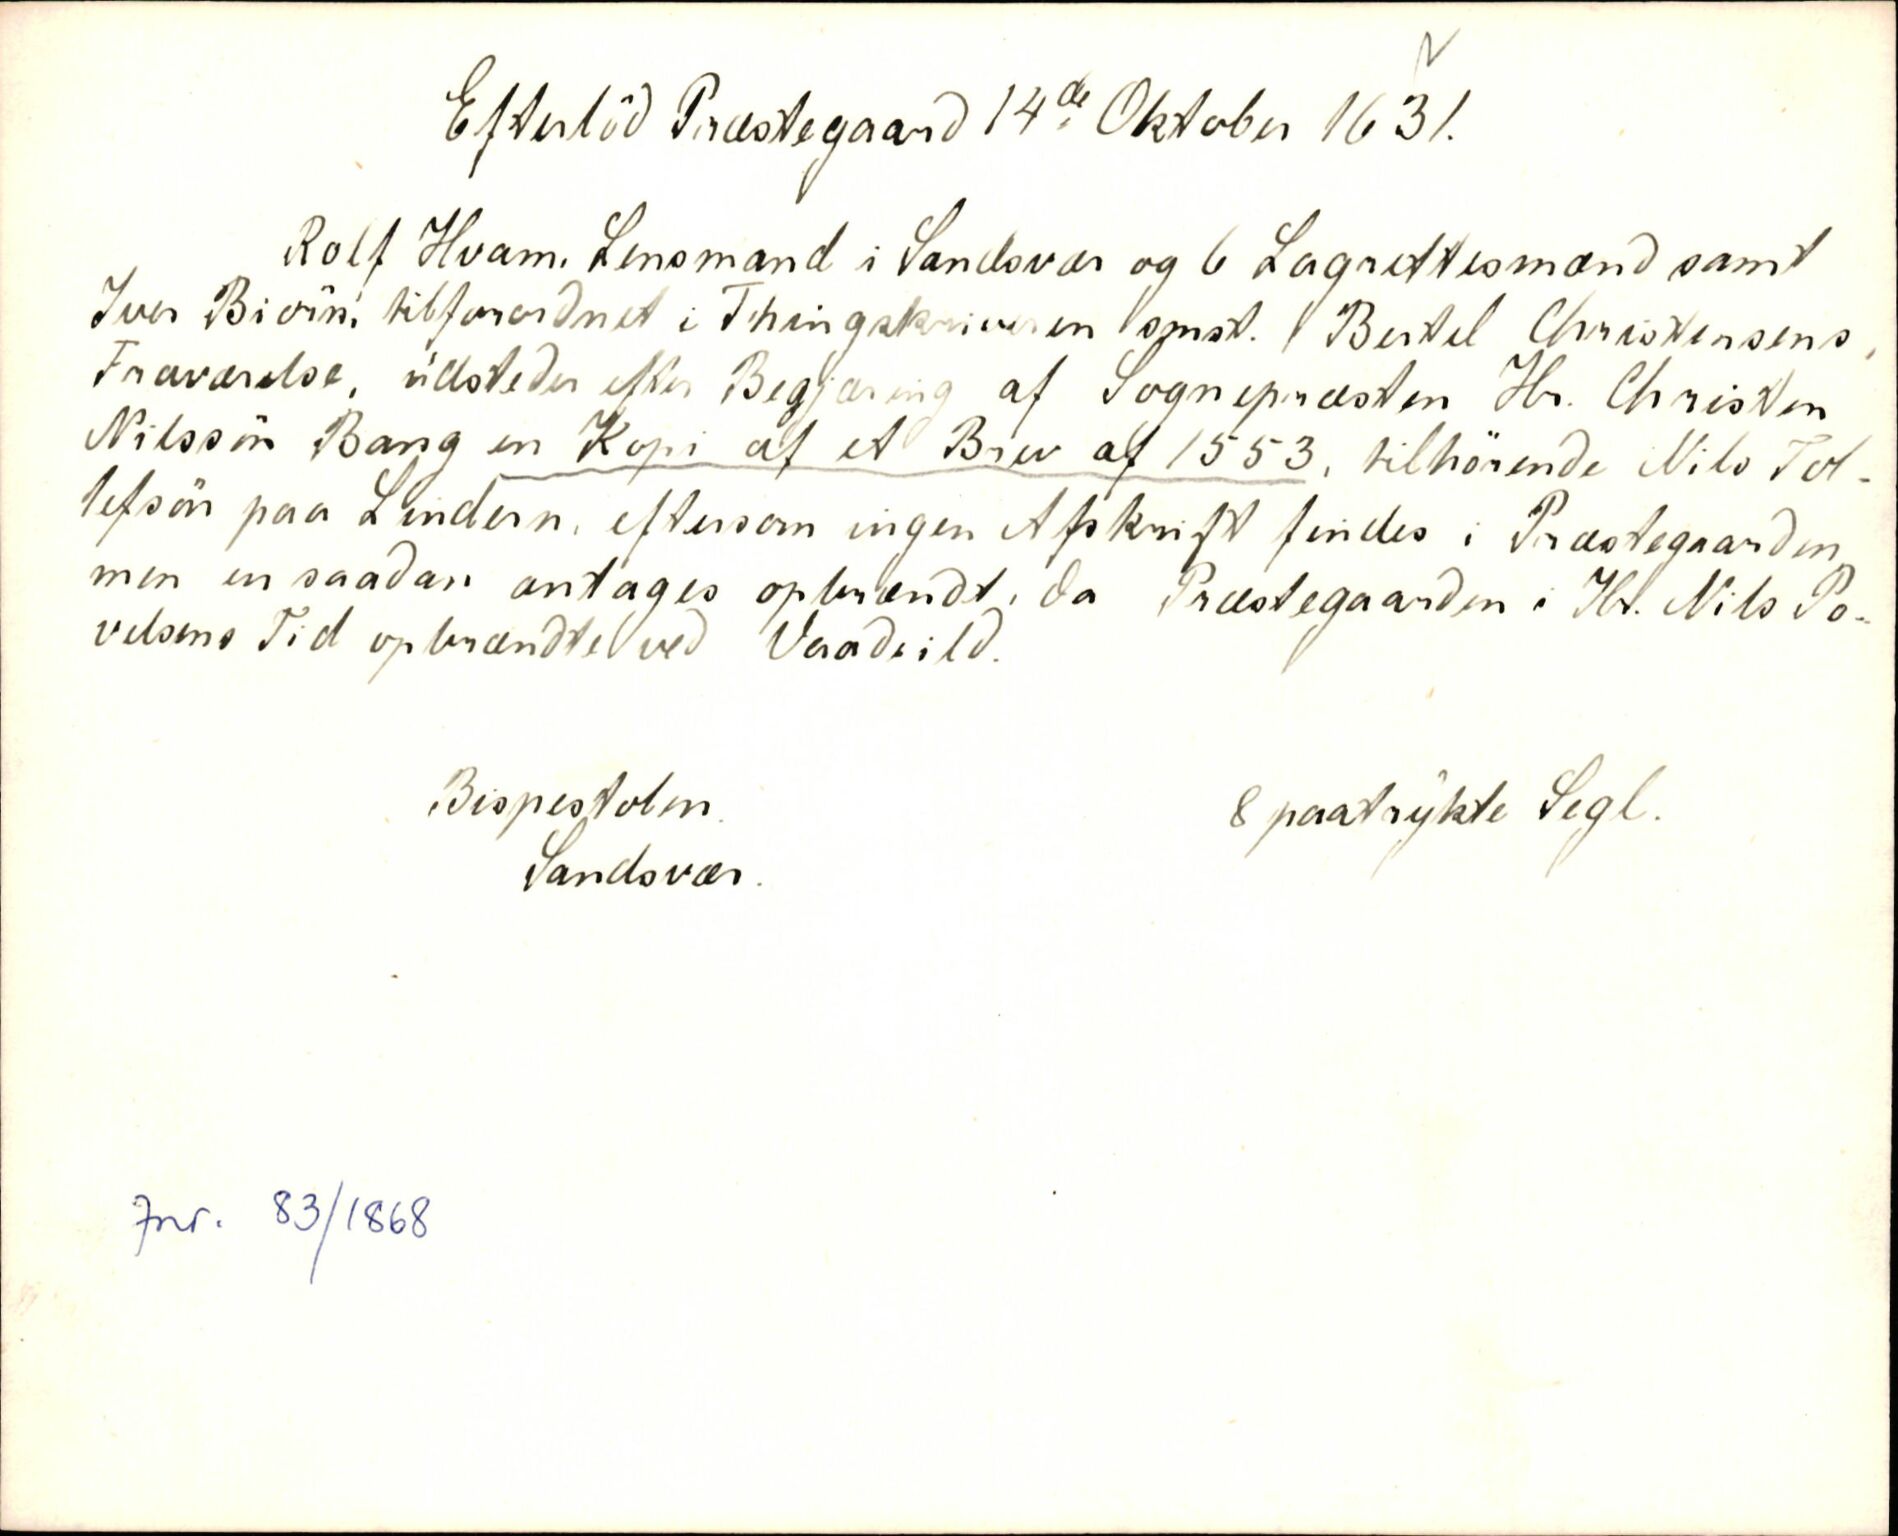 Efterlöd Præstegaard 14de Oktober 1631.
Rolf Hvam, Lensmand i Sandsvær og 6 Lagrettesmænd samt
Iver Biörn, tilforordnet i Thingskriveren smst. Bertel Christensens
Fraværelse, udsteder efter Begjæring af Sognepræsten Hr. Christen
Nilssön Bang en Kopi af et Brev af 1553, tilhörende Nils Tol-
lefsön paa Lindern, eftersom ingen Afskrift findes i Præstegaarden,
men en saadan antages opbrændt, da Præstegaarden i Hr. Nils Po-
velsens Tid opbrændte ved Vaadeild.
Bispestolen. 8 paatrykte Segl.
Sandsvær.
Jnr. 83/1868